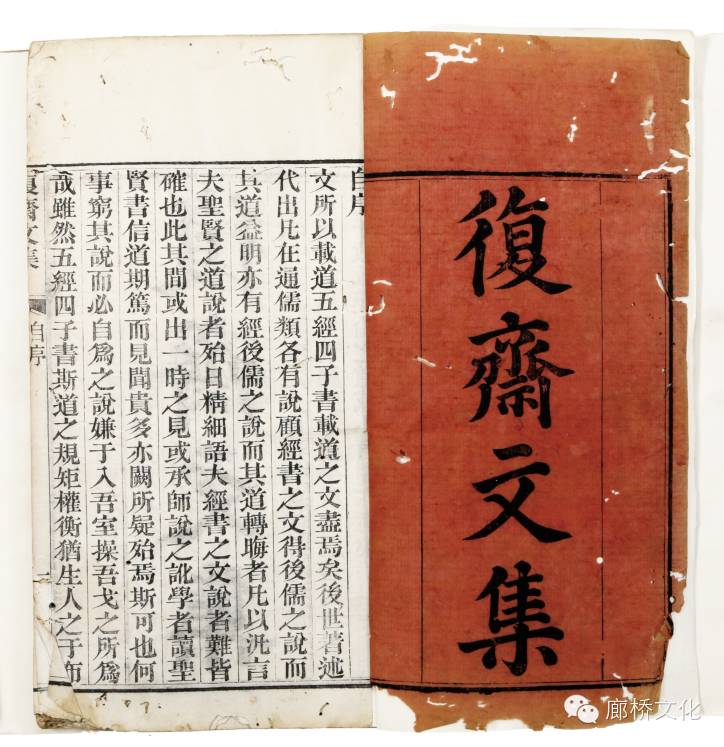 復齋文集
自序
文所以載道五經四子書載道之文盡焉矣後世著述
代出凡在通儒類各有說顧經書之文得後儒之說而
其道益明亦有經後儒之說而其道轉晦者凡以汎言
夫聖賢之道說者殆日精細語夫經書之文說者難皆
確也此其間或出一時之見或承師說之訛學者讀聖
賢書信道期篤而見聞貴多亦闕所疑殆焉斯可也何
事窮其說而必自爲之說嫌于入吾室操吾戈之所爲
哉雖然五經四子書斯道之規矩權衡猶生人之于布
復齋文集 自序
廊桥文化